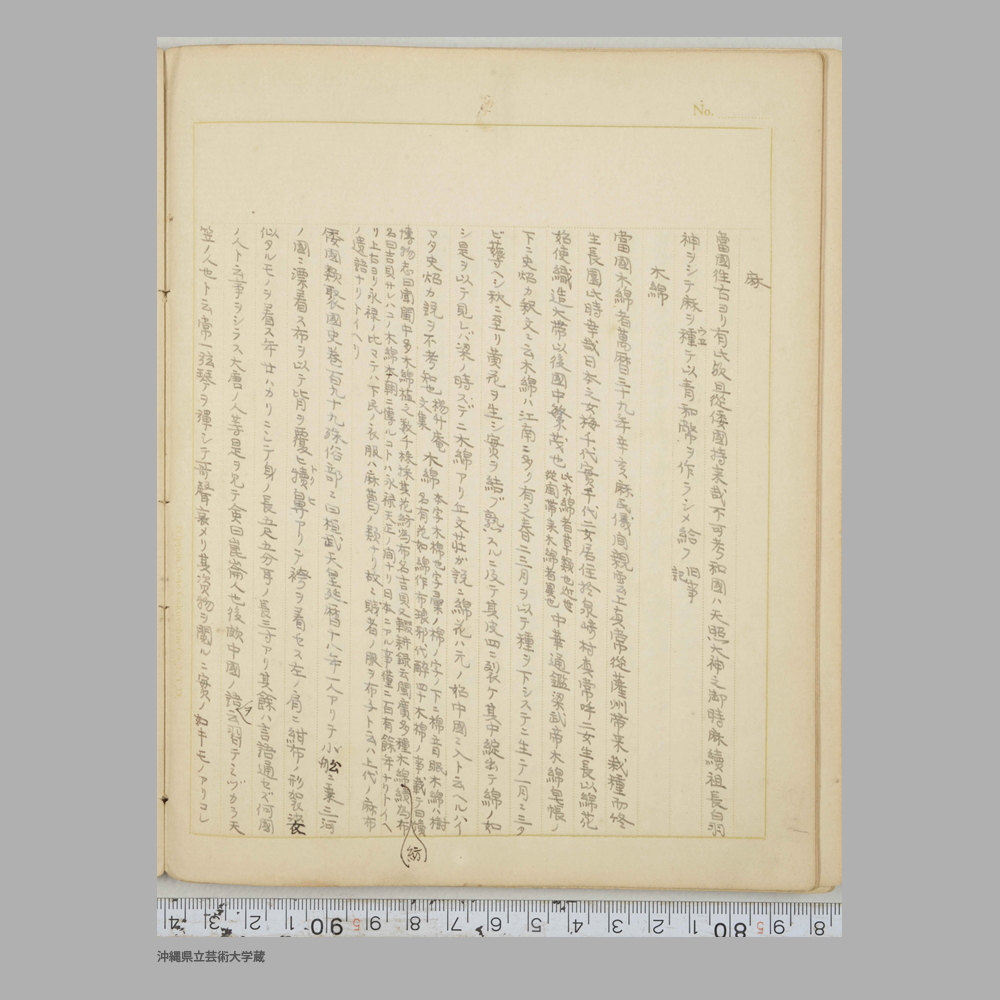 No.
麻
當國往古ヨリ有此歟且從倭國持来哉不可考和國ハ天照大神之御時麻績祖長白羽
神ヲシテ麻ヲ種テ以青和幣ヲ作ラシメ給フ 旧事記
ウエ
木綿
當國木綿者萬暦三十九年辛亥麻氏儀間親雲上真常從薩州帯来栽種而終
生長圍此時幸哉日本之女梅千代實千代二女居住於泉崎村真常呼二女生長以綿花
始使織造大帯以後國中繁茂也 此木綿者草敷也近世從南帯来木綿者異也 中華通鑑梁武帝木綿皂帳ノ
下ニ史炤カ釈文ニ云木綿ハ江南ニ多ク有之春二三月ヲ以テ種ヲ下システニ生テ一月ニ三タ
ビ薅ヘシ秋ニ至リ黄花ヲ生シ實ヲ結ブ熟スルニ及テ其皮四ニ裂ケ其中綻出テ綿ノ如
シ是ヲ以テ見レバ梁ノ時スデニ木綿アリ丘文荘カ説ニ綿花ハ元ノ始中國ニ入ト云ヘルハイ
マタ史炤カ説ヲ不考知也 楊升庵文集 木綿 本字木棉也字彙ノ棉ノ字ノ下ニ棉音眠木綿ハ樹
名有花如綿作布張邦代醉四十木棉ノ事載テ曰
博物志曰閩中多木綿植之数千株採其花紡為布名吉貝又輟耕録云閩廣多種木綿績為布
名曰吉貝サレハコノ木綿本朝ニ傳ルコトハ永禄天正ノ間ナリ日本ニアル事僅ニ百有餘年ナリトイヘ
リ上古ヨリ永禄ノ比マテハ下民ノ衣服ハ麻葛ノ類ナリ故ニ賤者ノ服ヲ布子ト云ハ上代ノ麻布
ノ遺語ナリトイヘリ
倭國類聚國史巻百九十九殊俗部ニ曰桓武天皇延暦十八年一人アリテ小舩ニ乗三河
ノ國ニ漂着ス布ヲ以テ背ヲ覆ヒ犢鼻アリテ袴ヲ着セス左ノ肩ニ紺布ノ形袈裟
似タルモノヲ着ス年廿ハカリニシテ身ノ長五尺五分耳ノ長三寸アリ其餘ハ言語通セズ何國
ノ人ト云事ヲシラス大唐ノ人等是ヲ見テ僉曰崑崙人也後敢中國ノ語ヲ習テミヅカラ天
竺ノ人也ト云常一弦琴ヲ彈シテ哥聲哀メリ其資物ヲ閲ルニ實ノ如キモノアリコレ
(紡)
沖縄県立芸術大学蔵